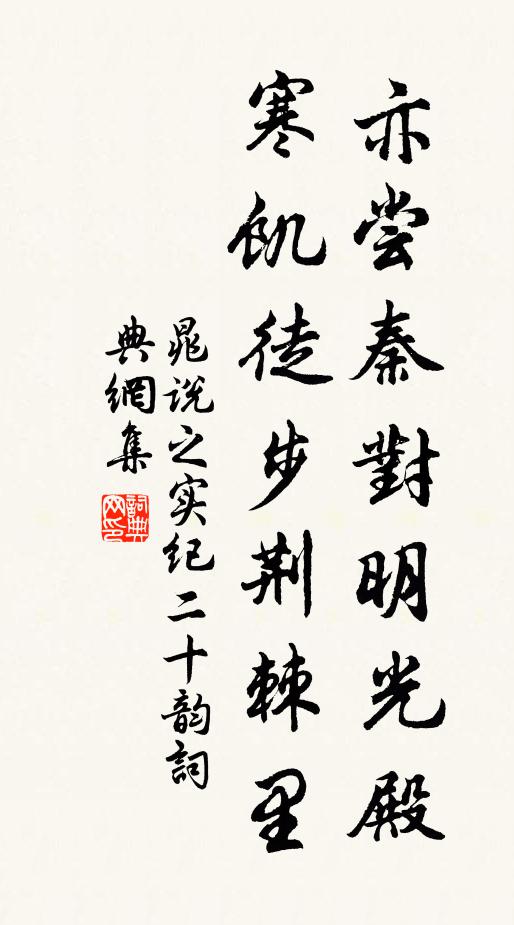 亦尝秦對明光殿
寒飢徒步荆棘里
晁说之实纪二十韵詞
典網集
詞典网印